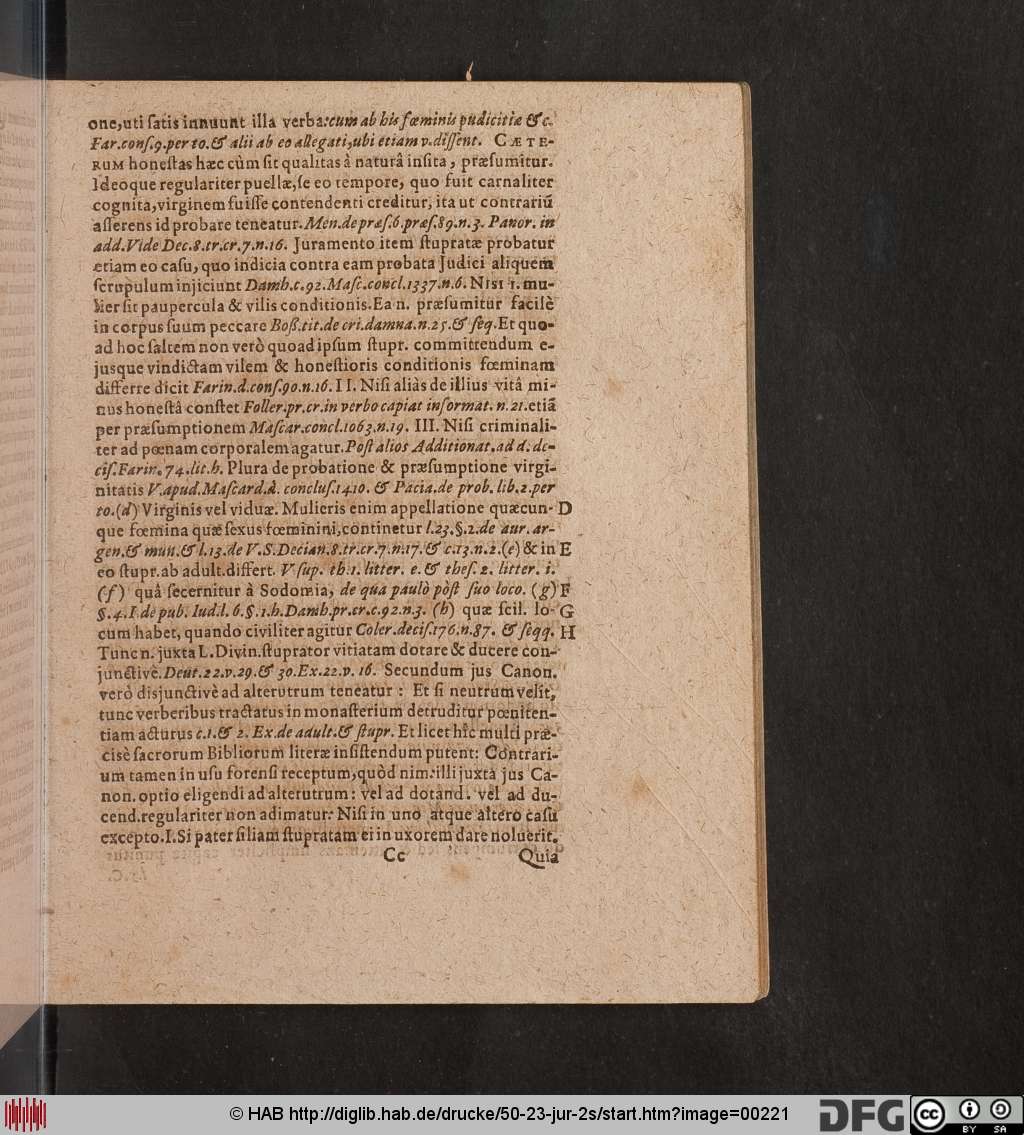 one,uti ſatis innuunt illa verba:cum ab his fœminis pudicitiæ & c.
Far.conſ.9.per to.& alii ab eo allegati,ubi etiam v.diſſent. CÆTE-
RUM honeſtas hæc cùm ſit qualitas â naturâ inſita, præſumitur.
Ideoque regulariter puellæ,ſe eo tempore, quo fuit carnaliter
cognita,virginem fuiſſe contendenti creditur, ita ut contrariũ
aſſerens id probare teneatur.Men.de præſ.6.præſ.89.n.3. Panor. in
add.Vide Dec.8.tr.cr.7.n.16. Juramento item ſtupratæ probatur
etiam eo caſu, quo indicia contra eam probata Judici aliquem
ſcrupulum injiciunt Damh.c.92.Maſc.concl.1337.n.6. NISI I. mu-
lier ſit paupercula & vilis conditionis.Ea n. præſumitur facilè
in corpus ſuum peccare Boß.tit.de cri.damna.n.25.& ſeq.Et quo-
ad hoc ſaltem non verò quoad ipſum ſtupr. committendum e-
jusque vindictam vilem & honeſtioris conditionis fœminam
differre dicit Farin.d.conſ.90.n.16. II. Niſi aliàs de illius vitâ mi-
nus honeſtâ conſtet Foller.pr.cr.in verbo capiat informat. n.21.etiã
per præſumptionem Maſcar.concl.1063.n.19. III. Niſi criminali-
ter ad pœnam corporalem agatur.Poſt alios Additionat.ad d.de-
ciſ.Farin.74.lit.h. Plura de probatione & præſumptione virgi-
nitatis V.apud.Maſcard.d. concluſ.1410. & Pacia.de prob. lib.2.per
to.(d) Virginis vel viduæ. Mulieris enim appellatione quæcun- D
que fœmina quæ ſexus fœminini,continetur l.23.§.2.de aur. ar-
gen.& mun.& l.13.de V.S.Decian.8.tr.cr.7.n.17.& c.13.n.2.(e) & in E
eo ſtupr.ab adult.differt. V ſup. th.1. litter. e.& theſ.2. litter. i.
(f) quâ ſecernitur à Sodomia, de qua paulò pòſt ſuo loco. (g) F
§.4.I.de pub. Iud.l.6.§.1.h.Damh.pr.cr.c.92.n.3. (h) quæ ſcil. lo- G
cum habet, quando civiliter agitur Coler.deciſ.176.n.87. & ſeqq. H
Tunc n. juxta L.Divin.ſtuprator vitiatam dotare & ducere con-
junctivè.Deut.22.v.29.& 30.Ex.22.v.16. Secundum jus Canon.
verò disjunctivè ad alterutrum teneatur : Et ſi neutrum velit,
tunc verberibus tractatus in monaſterium detruditur pœniten-
tiam acturus c.1.& 2. Ex.de adult.& ſtupr. Et licet hîc multi præ-
cisè ſacrorum Bibliorum literæ inſiſtendum putent: Contrari-
um tamen in uſu forenſi receptum,quòd nim:illi juxta jus Ca-
non. optio eligendi ad alterutrum : vel ad dotand. vel ad du-
cend.regulariter non adimatur: Niſi in uno atque altero caſu
excepto.I.Si pater filiam ſtupratam ei in uxorem dare noluerit.
Cc Quia
© HAB http://diglib.hab.de/drucke/50-23-jur-2s/start.htm?image=00221
DFG
cc BY SA